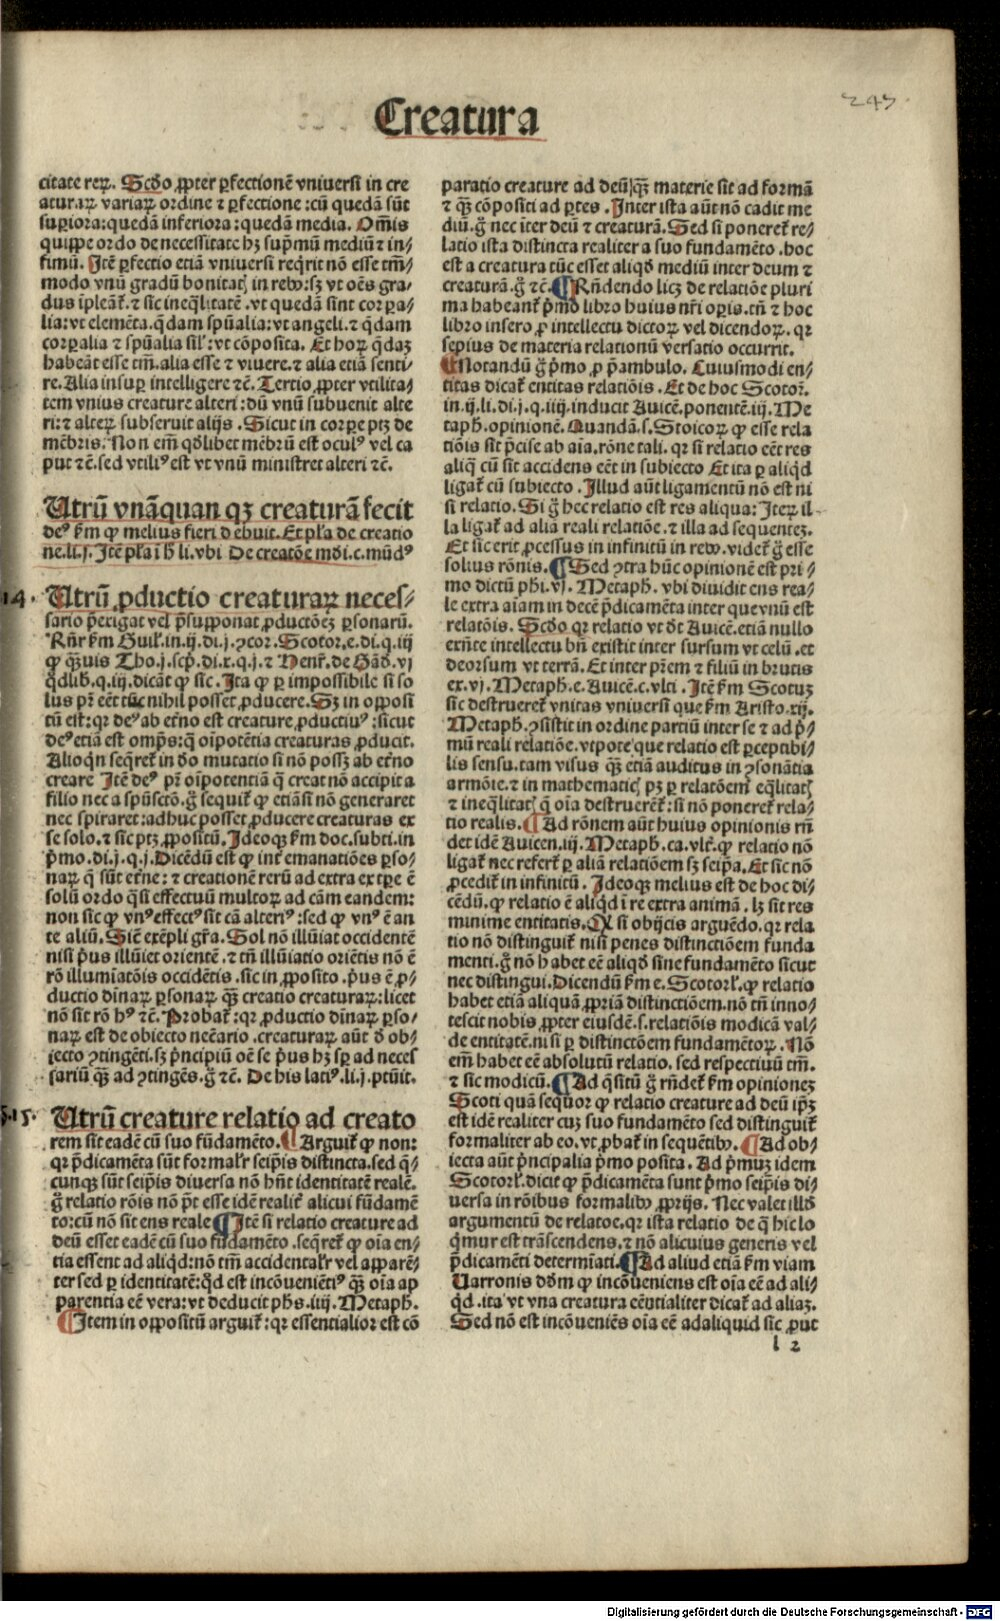 243
Creatura
citate reꝝ. Scḋo ꝓpter ꝑfectionē vniuersi in cre
aturaꝝ variaꝝ ordine ⁊ ꝑfectione : cū quedā sūt
suꝑiora: quedā inferiora: quedā media. Om̄is
quippe ordo de necessitate hꝫ sup̄mū mediū ⁊ in⸗
fimū. Itē ꝑfectio etiā vniuersi req̄rit nō esse tm̄⸗
modo vnū gradū bonitatꝭ in reb9: sꝫ vt oēs gra⸗
dus īpleant̃. ⁊ sic ineq̄litatē .vt quedā sint corꝑa⸗
lia: vt elemēta. q̄dam spūalia: vt angeli. ⁊ q̄dam
corꝑalia ⁊ spūalia sil̛: vt cōposita. Et hoꝝ q̄daꝫ
habeāt esse tm̄. alia esse ⁊ viuere. ⁊ alia etiā senti⸗
re. Alia insuꝑ intelligere ⁊c̄. Tertio ꝓpter vtilita⸗
tem vnius creature alteri: dū vnū subuenit alte
ri: ⁊ alteꝝ subseruit alijs . Sicut in corꝑe ptꝫ de
mēbris. Non em̄ qḋlibet mēbrū est ocul9 vel ca
put ⁊c̄. sed vtili9 est vt vnū ministret alteri ⁊c̄.
Utrū vnāquan qꝫ creaturā fecit
de9 ẜm ꝙ melius fieri debuit. Et pl̄a de creatio
ne.li.j. Itē pl̄a ī h̄ li. vbi De creatōe mḋi.c. mūd9
14. Utrū ꝓductio creaturaꝝ neces⸗
sario p̄exigat vel p̄supponat ꝓductōeꝫ ꝑsonarū.
Rn̄r ẜm Guil̛.in.ij.di.j. ꝯcor. Scotoꝝ. e.di.q.iij
ꝙ qꝫuis Tho.j.scp̄.di.x.q.j. ⁊ Henr̄. de Gāḋ. vj
q̄dlib.q.iij. dicāt ꝙ sic. Ita ꝙ ꝑ impossibile si so
lus pr̄ eēt tūc nihil posset ꝓducere. Sꝫ in opposi
tū est: qꝛ de9 ab et̄no est creature ꝓductiu9: sicut
de9 etiā est omp̄s: q̄ oīpotētia creaturas ꝓducit.
Alioq̄n seq̄ret̃ in ḋo mutatio si nō possꝫ ab et̄no
creare Itē de9 pr̄ oīpotentiā q̄ creat nō accipit a
filio nec a spūsctō. g̊ sequit̃ ꝙ etiāsi nō generaret
nec spiraret: adhuc posset ꝓducere creaturas ex
se solo. ⁊ sic ptꝫ ꝓpositū. Ideoqꝫ ẜm doc. subti. in
p̄mo.di.j.q.j. Dicēdū est ꝙ int̛ emanatiōes ꝑso⸗
naꝝ q̄ sūt et̄ne: ⁊ creationē rerū ad extra ex tꝑe ē
solū ordo q̄si effectuū multoꝝ ad cām eandem:
non sic ꝙ vn9 effect9 sit cā alteri9: sed ꝙ vn9 ē an
te aliū. Sic̄ exēpli gr̄a. Sol nō illūiat occidentē
nisi p̄us illūiet orientē. ⁊ tn̄ illūiatio oriētis nō ē
rō illumiatōis occidētis. sic in ꝓposito. p̄us ē ꝓ⸗
ductio dīnaꝝ ꝑsonaꝝ qꝫ creatio creaturaꝝ: licet
nō sit rō h9 ⁊c̄. Probat̃: qꝛ ꝓductio dīnaꝝ ꝑso⸗
naꝝ est de obiecto nec̄ario . creaturaꝝ aūt ḋ ob⸗
iecto ꝯtingēti. sꝫ p̄ncipiū oē se p̄us hꝫ sꝑ ad neces
sariū qꝫ ad ꝯtingēs. g̊ ⁊c̄. De his lati9.li.j. ptūit.
15. Utrū creature relatio ad creato
rem sit eadē cū suo fūdamēto. ¶ Arguit̃ ꝙ non:
qꝛ p̄dicamēta sūt formal̛r seip̄is distincta. sed q̄⸗
cunqꝫ sūt seip̄is diuersa nō hn̄t identitatē realē.
g̊ relatio rōis nō pt̄ esse idē realit̃ alicui fūdamē
to: cū nō sit ens reale ¶ Itē si relatio creature ad
deū esset eadē cū suo fūdamēto . seq̄ret̃ ꝙ oīa en⸗
tia essent ad aliqḋ: nō tm̄ accidental̛r vel apparē⸗
ter sed ꝑ identitatē: qḋ est incōueniēti9 qꝫ oīa ap
parentia eē vera: vt deducit ph̄s.iiij. Metaph̄.
¶ Item in oppositū arguit̃: qꝛ essentialior est cō
paratio creature ad deū/ qꝫ materie sit ad formā
⁊ qꝫ cōpositi ad ꝑtes . Inter ista aūt nō cadit me
diū. g̊ nec iter deū ⁊ creaturā. Sed si poneret̃ re⸗
latio ista distincta realiter a suo fundamēto. hoc
est a creatura tūc esset aliqḋ mediū inter deum ⁊
creaturā. g̊ ⁊c̄. ¶ Rn̄dendo licꝫ de relatiōe pluri
ma habeant̃ p̄mo libro huius nr̄i oꝑis. tn̄ ⁊ hoc
libro insero ꝓ intellectu dictoꝝ vel dicendoꝝ. qꝛ
sepius de materia relationū versatio occurrit.
¶ Notandū g̊ p̄mo ꝓ p̄ambulo. Cuiusmodi en⸗
titas dicat̃ entitas relatiōis . Et de hoc Scotoꝝ.
in.ij.li.di.j.q.iiij. inducit Auicē. ponentē.iij. Me
taph̄. opinionē. Quandā.s. Stoicoꝝ ꝙ esse rela
tiōis sit p̄cise ab aīa. rōne tali. qꝛ si relatio eēt res
aliq̄ cū sit accidens eēt in subiecto Et ita ꝑ aliqḋ
ligat̃ cū subiecto . Illud aūt ligamentū nō est ni
si relatio. Si g̊ hec relatio est res aliqua: Iteꝝ il⸗
la ligat̃ ad aliā reali relatiōe. ⁊ illa ad sequenteꝫ.
Et sic erit ꝓcessus in infinitū in reb9. videt̃ g̊ esse
solius rōnis. ¶ Sed ꝯtra hūc opinionē est pri⸗
mo dictū phi. vj . Metaph̄. vbi diuidit ens rea⸗
le extra aīam in decē p̄dicamēta inter que vnū est
relatōis. Scḋo qꝛ relatio vt ḋt Auicē. etiā nullo
exn̄te intellectu bn̄ existit inter sursum vt celū . et
deorsum vt terrā. Et inter pr̄em ⁊ filiū in brutis
ex. vj. Metaph̄. e. Auicē. c. vlti . Itē ẜm Scotuꝫ
sic destrueret̃ vnitas vniuersi que ẜm Aristo.xij.
Metaph̄. ꝯsistit in ordine partiū inter se ⁊ ad p̄⸗
mū reali relatiōe. vtpote que relatio est ꝑceptibi⸗
lis sensu. tam visus qꝫ etiā auditus in ꝯsonātia
armōie. ⁊ in mathematicꝭ pꝫ ꝑ relatōem eq̄litatꝭ
⁊ ineq̄litatꝭ q̄ oīa destruerēt̃: si nō poneret̃ rela⸗
tio realis. ¶ Ad rōnem aūt huius opinionis rn̄
det idē Auicen. iij. Metaph̄. ca. vlt̃. ꝙ relatio nō
ligat̃ nec refert̃ ꝑ aliā relatiōem sꝫ seip̄a. Et sic nō
ꝓcedit̃ in infinitū . Ideoqꝫ melius est de hoc di⸗
cēdū. ꝙ relatio ē aliqḋ ī re extra animā . lꝫ sit res
minime entitatis. Qḋ si obijcis arguēdo. qꝛ rela
tio nō distinguit̃ nisi penes distinctiōem funda
menti. g̊ nō habet eē aliqḋ sine fundamēto sicut
nec distingui. Dicendū ẜm e. Scotorl̛. ꝙ relatio
habet etiā aliquā ꝓpriā distinctiōem. nō tn̄ inno⸗
tescit nobis ꝓpter eiusdē.s. relatiōis modicā val⸗
de entitatē. ni si ꝑ distinctiōem fundamētoꝝ. Nō
em̄ habet eē absolutū relatio. sed respectiuū tm̄.
⁊ sic modicū. ¶ Ad q̄sitū g̊ rn̄det̃ ẜm opinioneꝫ
Scoti quā sequor ꝙ relatio creature ad deū ip̄ꝫ
est idē realiter cuꝫ suo fundamēto sed distinguit̃
formaliter ab eo. vt ꝓbat̃ in sequētib9. ¶ Ad ob⸗
iecta aūt p̄ncipalia p̄mo posita . Ad p̄muꝫ idem
Scotorl̛. dicit ꝙ p̄dicamēta sunt p̄mo seip̄is di⸗
uersa in rōibus formalib9 ꝓprijs. Nec valet illḋ
argumentū de relatōe. qꝛ ista relatio de q̄ hic lo
q̄mur est trāscendens. ⁊ nō alicuius generis vel
p̄dicamēti determīati. ¶ Ad aliud etiā ẜm viam
Varronis dḋm ꝙ incōueniens est oīa eē ad ali⸗
q̄d . ita vt vna creatura eēntialiter dicat̃ ad aliaꝫ.
Sed nō est incōueniēs oīa eē adaliquid sic ꝓut
l 2
Digitalisierung gefördert durch die Deutsche Forschungsgemeinschaft - DFG